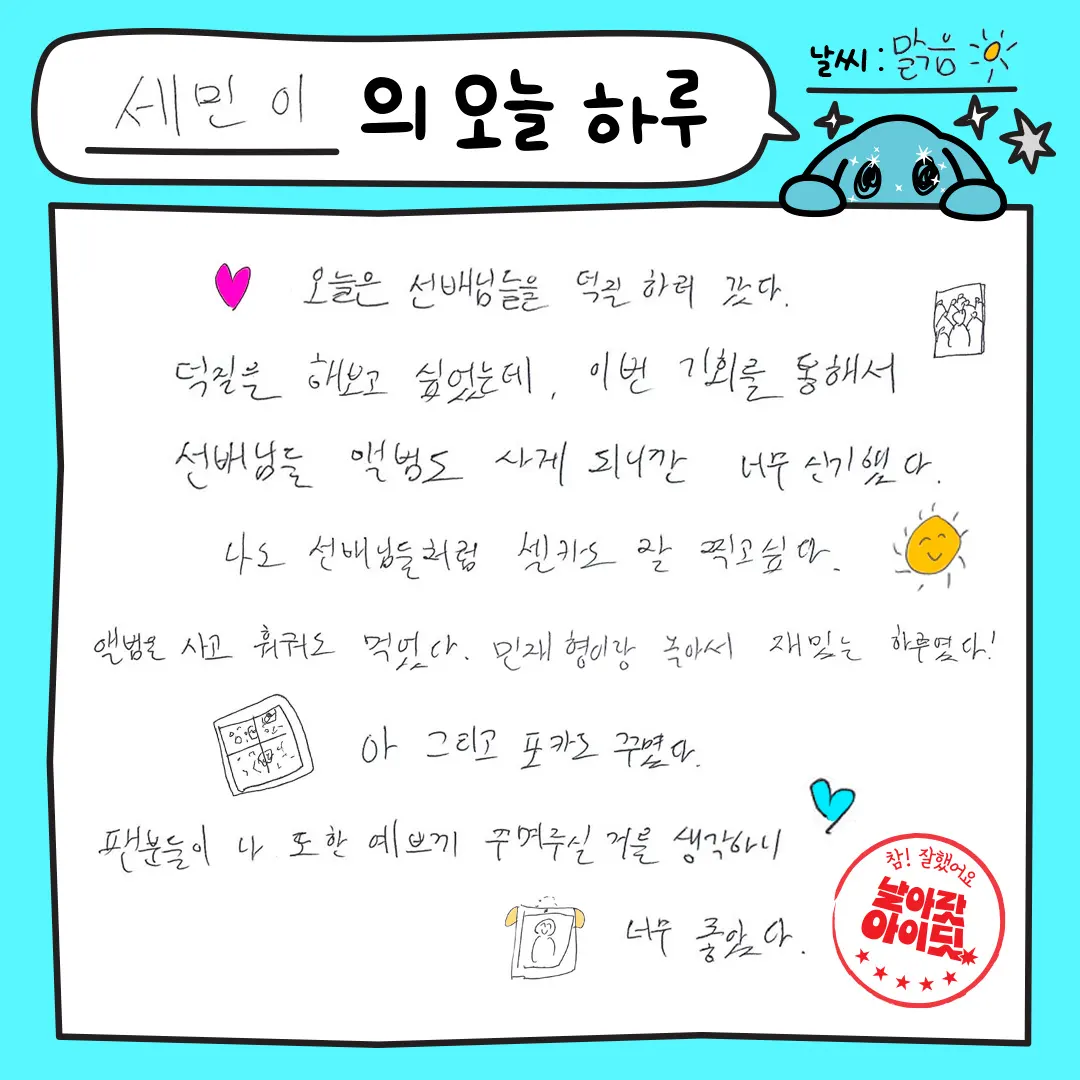 세민이의 오늘 하루
날씨 : 맑음
오늘은 선배님들을 덕질 하러 갔다.
덕질은 해보고 싶었는데, 이번 기회를 통해서
선배님들 앨범도 사게 되니깐 너무 신기했다.
나도 선배님들처럼 셀카도 잘 찍고싶다.
앨범도 사고 훠궈도 먹었다. 민재 형이랑 놀아서 재밌는 하루였다!
아 그리고 포카도 꾸몄다.
팬분들이 나 또한 예쁘게 꾸며주실 거를 생각하니
너무 좋았다.
참! 잘했어요
날아랏
아이딧